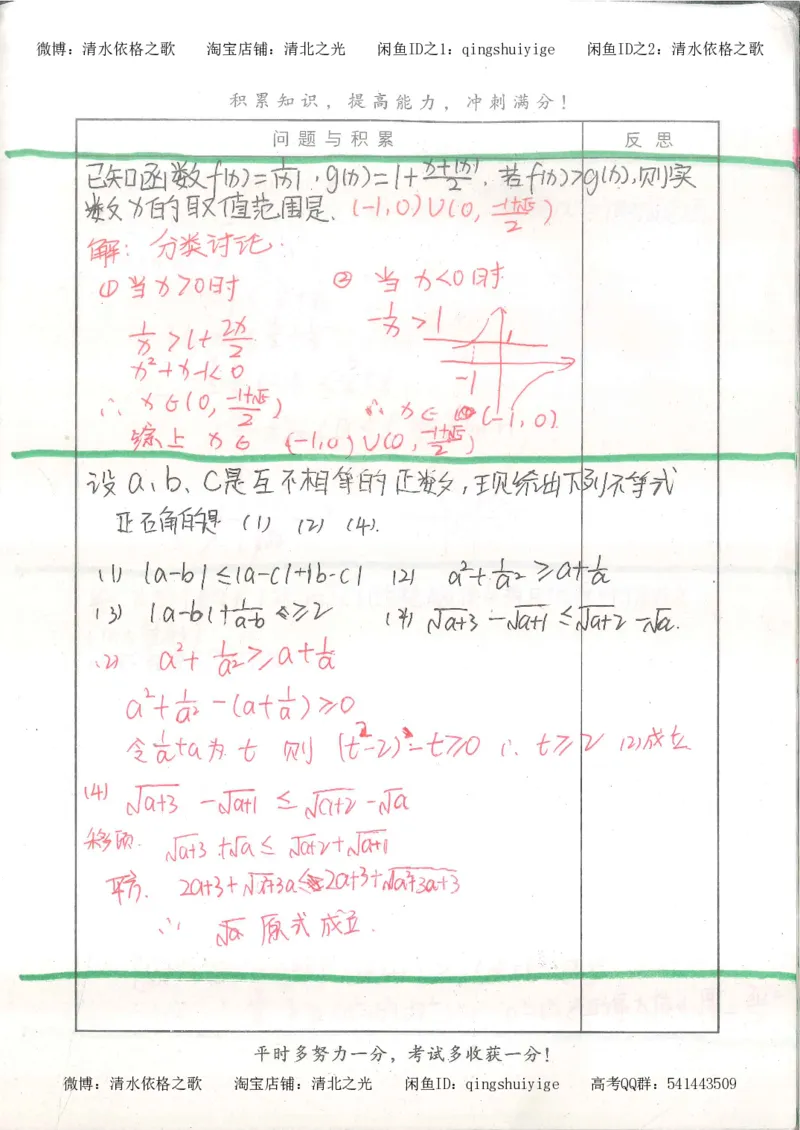 微博：清水依格之歌 淘宝店铺：清北之光 闲鱼ID之1：qingshuiyige 闲鱼ID之2：清水依格之歌
积累知识，提高能力，冲刺满分！
问题与积累 反思
已知函数f(x)=1/|x|，g(x)=1+(x+|x|)/2，若f(x)>g(x),则实
数x的取值范围是. (-1,0)∪(0, (-1+√5)/2)
解：分类讨论.
① 当x>0时 ② 当x<0时
1/x >1+ 2x/2 -1/x >1
x²+x-1<0 1
-1
∴ x∈(0, (-1+√5)/2) ∴ x∈ (-1,0).
综上 x∈ (-1,0)∪(0, (-1+√5)/2)
设a、b、c是互不相等的正数，现给出下列不等式
正确的是 (1) (2) (4).
(1) |a-b|≤|a-c|+|b-c| (2) a²+1/a²≥a+1/a
(3) |a-b|+1/(a-b) ≥2 (4) √(a+3) -√(a+1) ≤√(a+2) -√a.
(2) a²+ 1/a²≥a+1/a
a²+1/a² -(a+1/a)≥0
令1/a+a为 t 则 (t²-2)-t≥0 ∵ t≥2 (2)成立
(4) √(a+3) -√(a+1) ≤ √(a+2) -√a
移项. √(a+3) +√a≤ √(a+2)+√(a+1)
平方. 2a+3+√(a²+3a)≤2a+3+√(a²+3a+3)
∴ 原式成立.
平时多努力一分，考试多收获一分！
微博：清水依格之歌 淘宝店铺：清北之光 闲鱼ID：qingshuiyige 高考QQ群：541443509